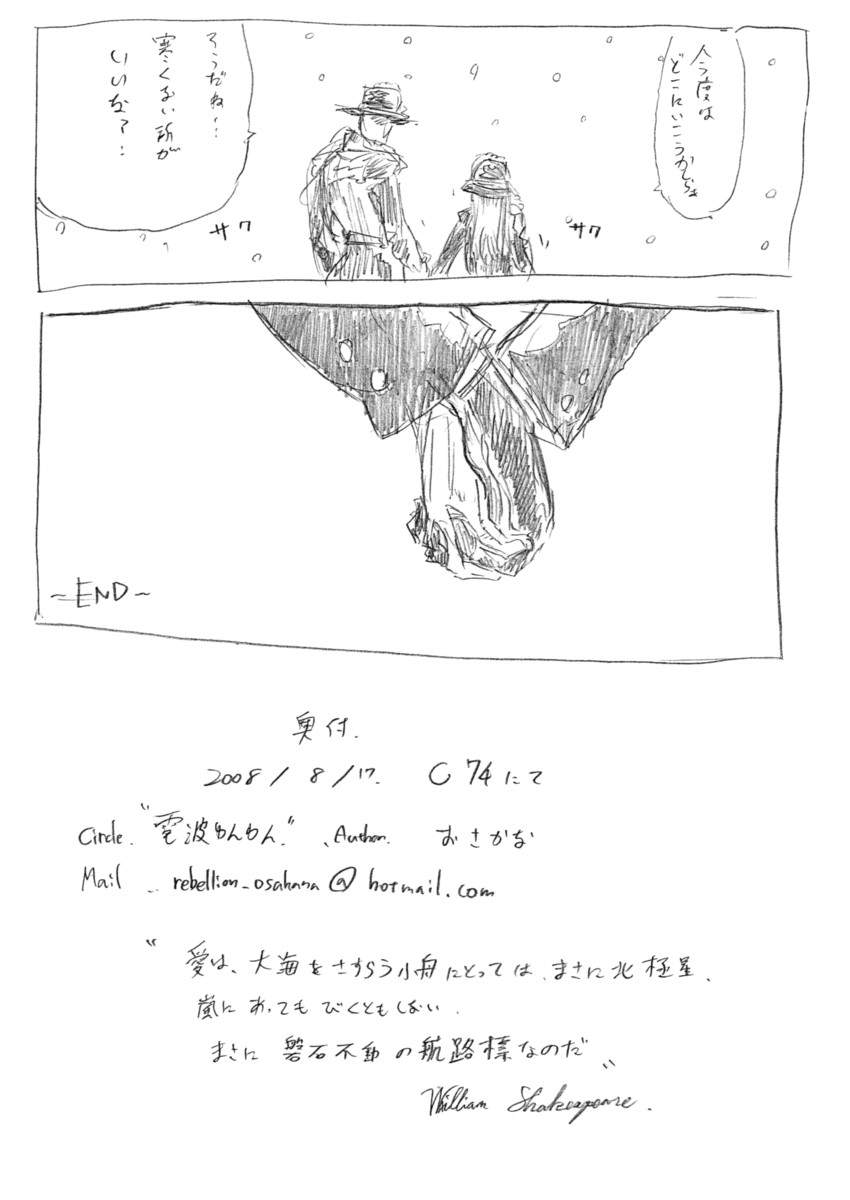 今度は
どこにいこうかしらき
そうだね…
寒くない所が
いいな？…
サク
サク
~END~
奥付.
2008/8/17. C74にて
Circle. "電波わんわん." 、Author. おさかな
Mail … rebellion_osakana@hotmail.com
" 愛は、大海をさすらう小舟にとっては、まさに北極星、
嵐にあっても びくともしない.
まさに 磐石不動の航路標なのだ "
William Shakespeare.